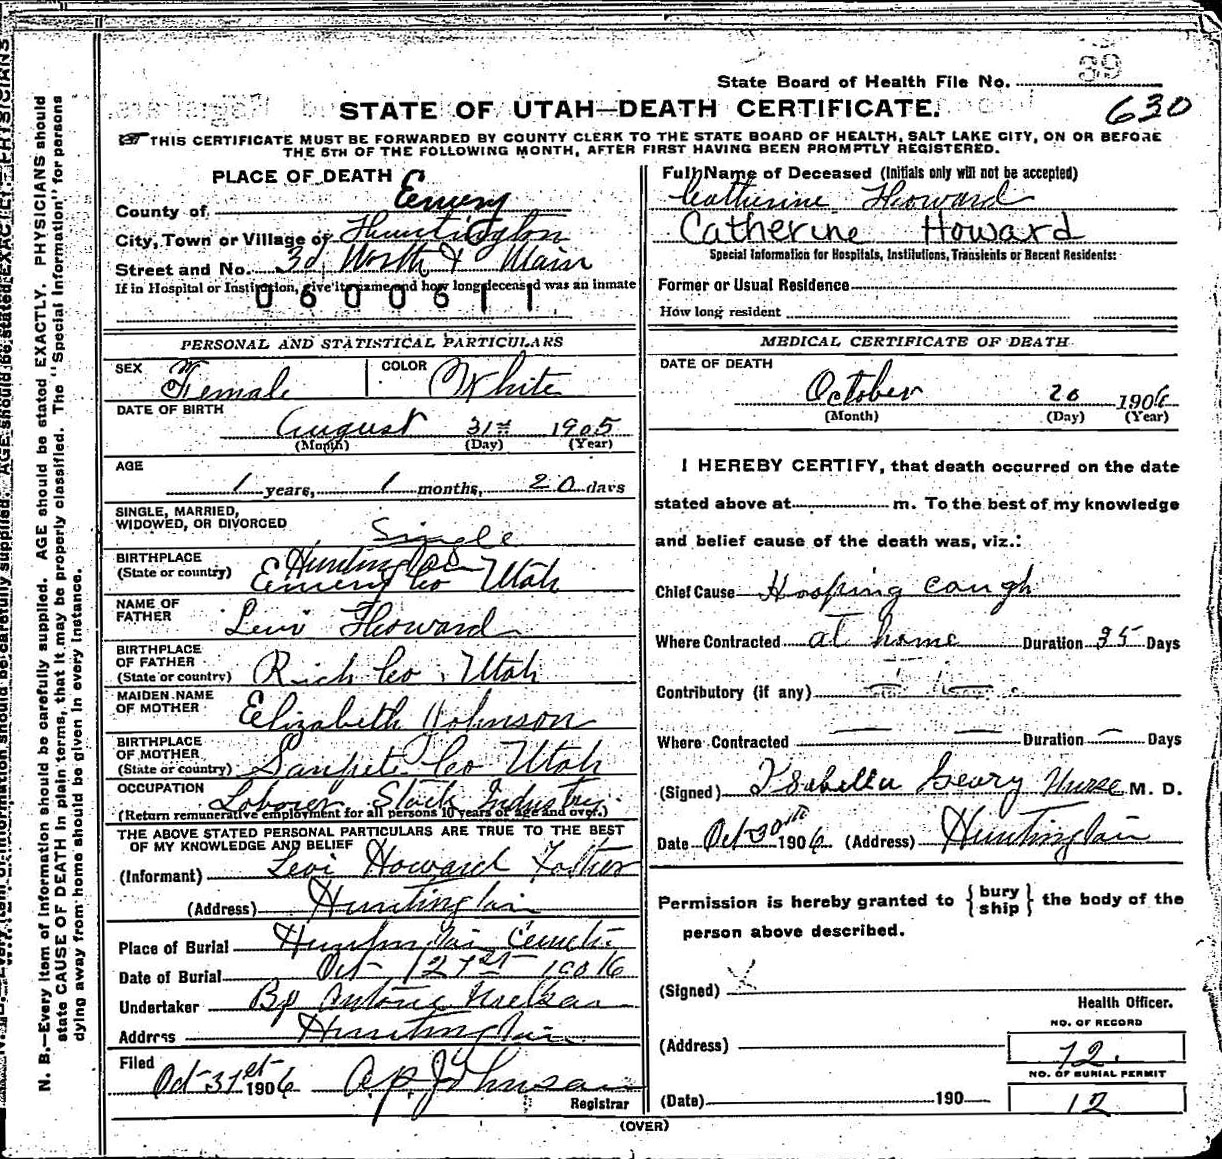 State Board of Health File No. 39
STATE OF UTAH—DEATH CERTIFICATE.
630
THIS CERTIFICATE MUST BE FORWARDED BY COUNTY CLERK TO THE STATE BOARD OF HEALTH, SALT LAKE CITY, ON OR BEFORE
THE 5TH OF THE FOLLOWING MONTH, AFTER FIRST HAVING BEEN PROMPTLY REGISTERED.
PLACE OF DEATH
County of Emery
City, Town or Village of Huntington
Street and No. 3d North & Main
If in Hospital or Institution, give its name and how long deceased was an inmate
0600611
Full Name of Deceased (Initials only will not be accepted)
Catherine Howard
Catherine Howard
Special Information for Hospitals, Institutions, Transients or Recent Residents:
Former or Usual Residence
How long resident
PERSONAL AND STATISTICAL PARTICULARS
SEX Female COLOR White
DATE OF BIRTH
August 31st 1905
(Month) (Day) (Year)
AGE
1 years, 1 months, 20 days
SINGLE, MARRIED,
WIDOWED, OR DIVORCED Single
BIRTHPLACE Huntington
(State or country) Emery Co Utah
NAME OF
FATHER Levi Howard
BIRTHPLACE
OF FATHER
(State or country) Rich Co. Utah
MAIDEN NAME
OF MOTHER Elizabeth Johnson
BIRTHPLACE
OF MOTHER
(State or country) Sanpete Co Utah
OCCUPATION
Laborer Stock Industry
(Return remunerative employment for all persons 10 years of age and over.)
THE ABOVE STATED PERSONAL PARTICULARS ARE TRUE TO THE BEST
OF MY KNOWLEDGE AND BELIEF
(Informant) Levi Howard Father
(Address) Huntington
Place of Burial Huntington
Date of Burial Oct 1906
Undertaker Bp
Address Huntington
Filed
Oct 31st 1906 A.P. Johnson
Registrar
MEDICAL CERTIFICATE OF DEATH
DATE OF DEATH
October 20 1906
(Month) (Day) (Year)
I HEREBY CERTIFY, that death occurred on the date
stated above at m. To the best of my knowledge
and belief cause of the death was, viz.:
Chief Cause Hooping cough
Where Contracted at home Duration 35 Days
Contributory (if any)
Where Contracted — — Duration — Days
(Signed) Isabella Geary Nurse M. D.
Date Oct 30th 1906 (Address) Huntington
Permission is hereby granted to {bury ship} the body of the
person above described.
(Signed) X
Health Officer.
NO. OF RECORD
(Address) 12.
NO. OF BURIAL PERMIT
(Date) 190 12
(OVER)
N. B.—Every item of information should be carefully supplied. AGE should be stated EXACTLY. PHYSICIANS should
state CAUSE OF DEATH in plain terms, that it may be properly classified. The "Special Information" for persons
dying away from home should be given in every instance.